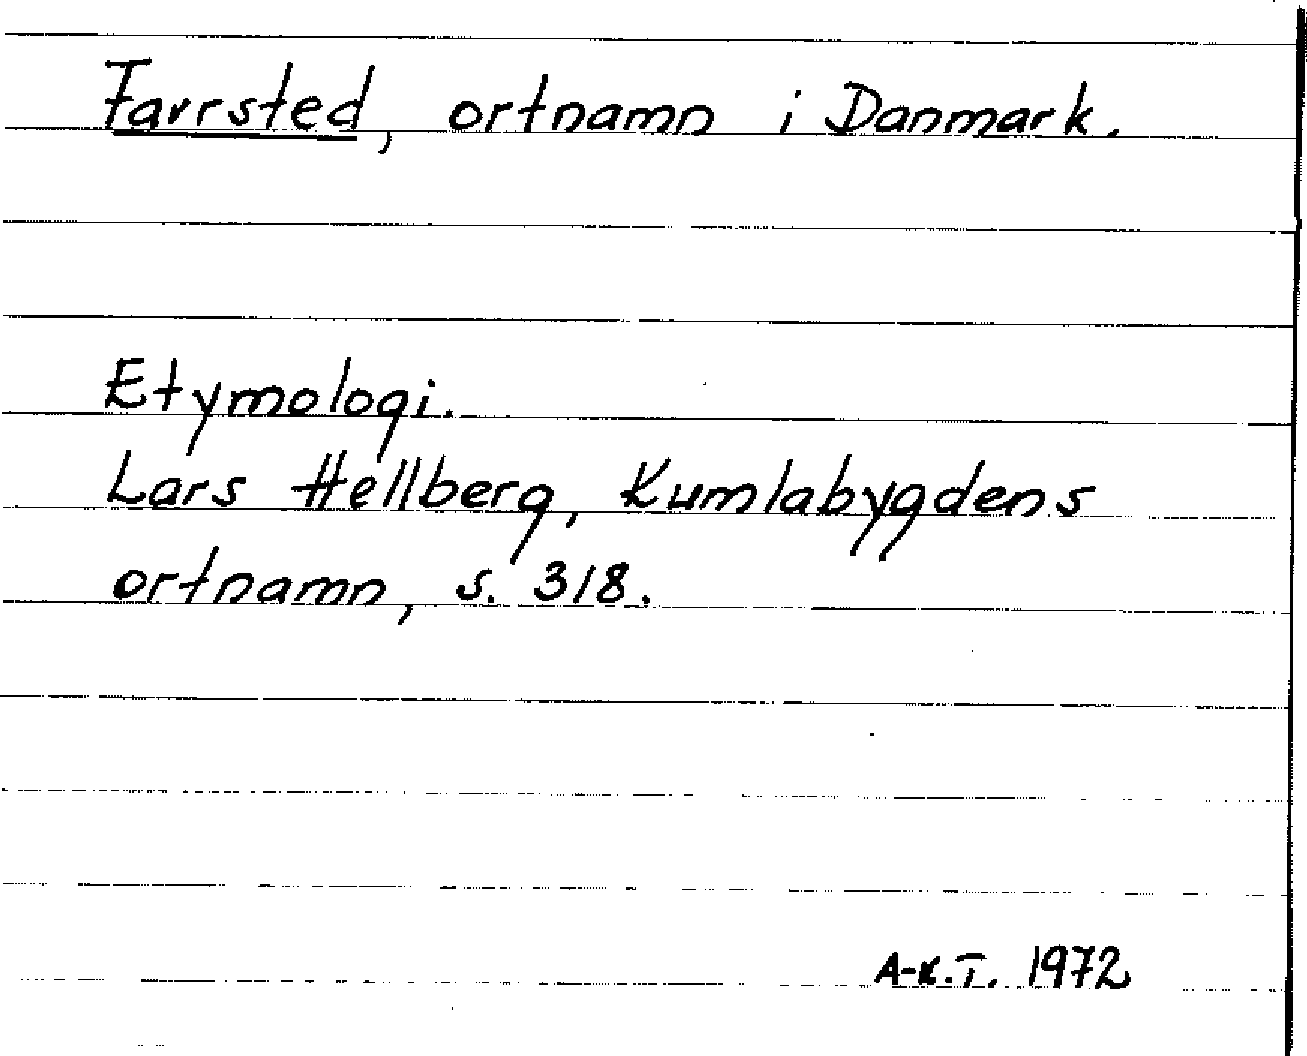 Favrsted, ortnamn i Danmark.
Etymologi.
Lars Hellberg, Kumlabygdens
ortnamn, s. 318.
A-K.T. 1972